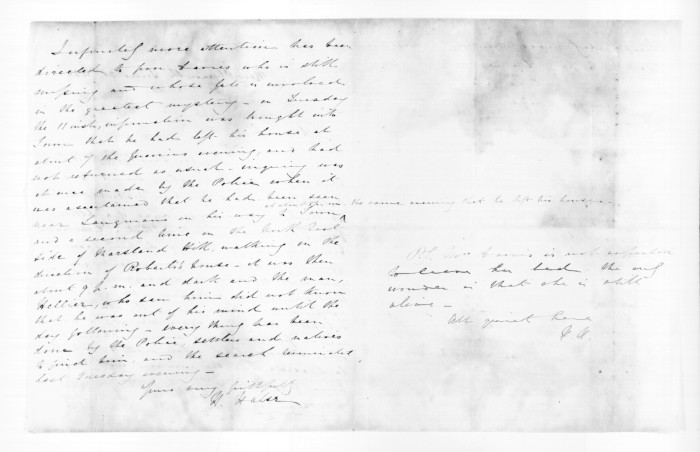 more attention has been
directed to poor Carnes who is still
missing and whose fate is involved
in the greatest mystery – on Tuesday
the 11 inst, information was brought into
Town that he had left his house at
about 7 the previous evening, and had
not returned as usual – inquiry was
at once made by the Police when it
was ascertained that he had been seen
the same evening that he left his house
near Langmans on his way to Town
and a second time on the North East
side of Marsland Hill, walking on the
direction of Roberts's house – it was then
about 9 p.m. and dark and the man,
Hellier, who saw him did not know
that he was out of his mind until the
day following – every thing has been
done by the Police, settlers and natives
to find him and the search
last Tuesday evening –
Yours very faithfully
H. Halse
P.S. Mrs Carnes is not expected
to leave her bed the only
wonder is that she is still
alive –
All quiet here
H H